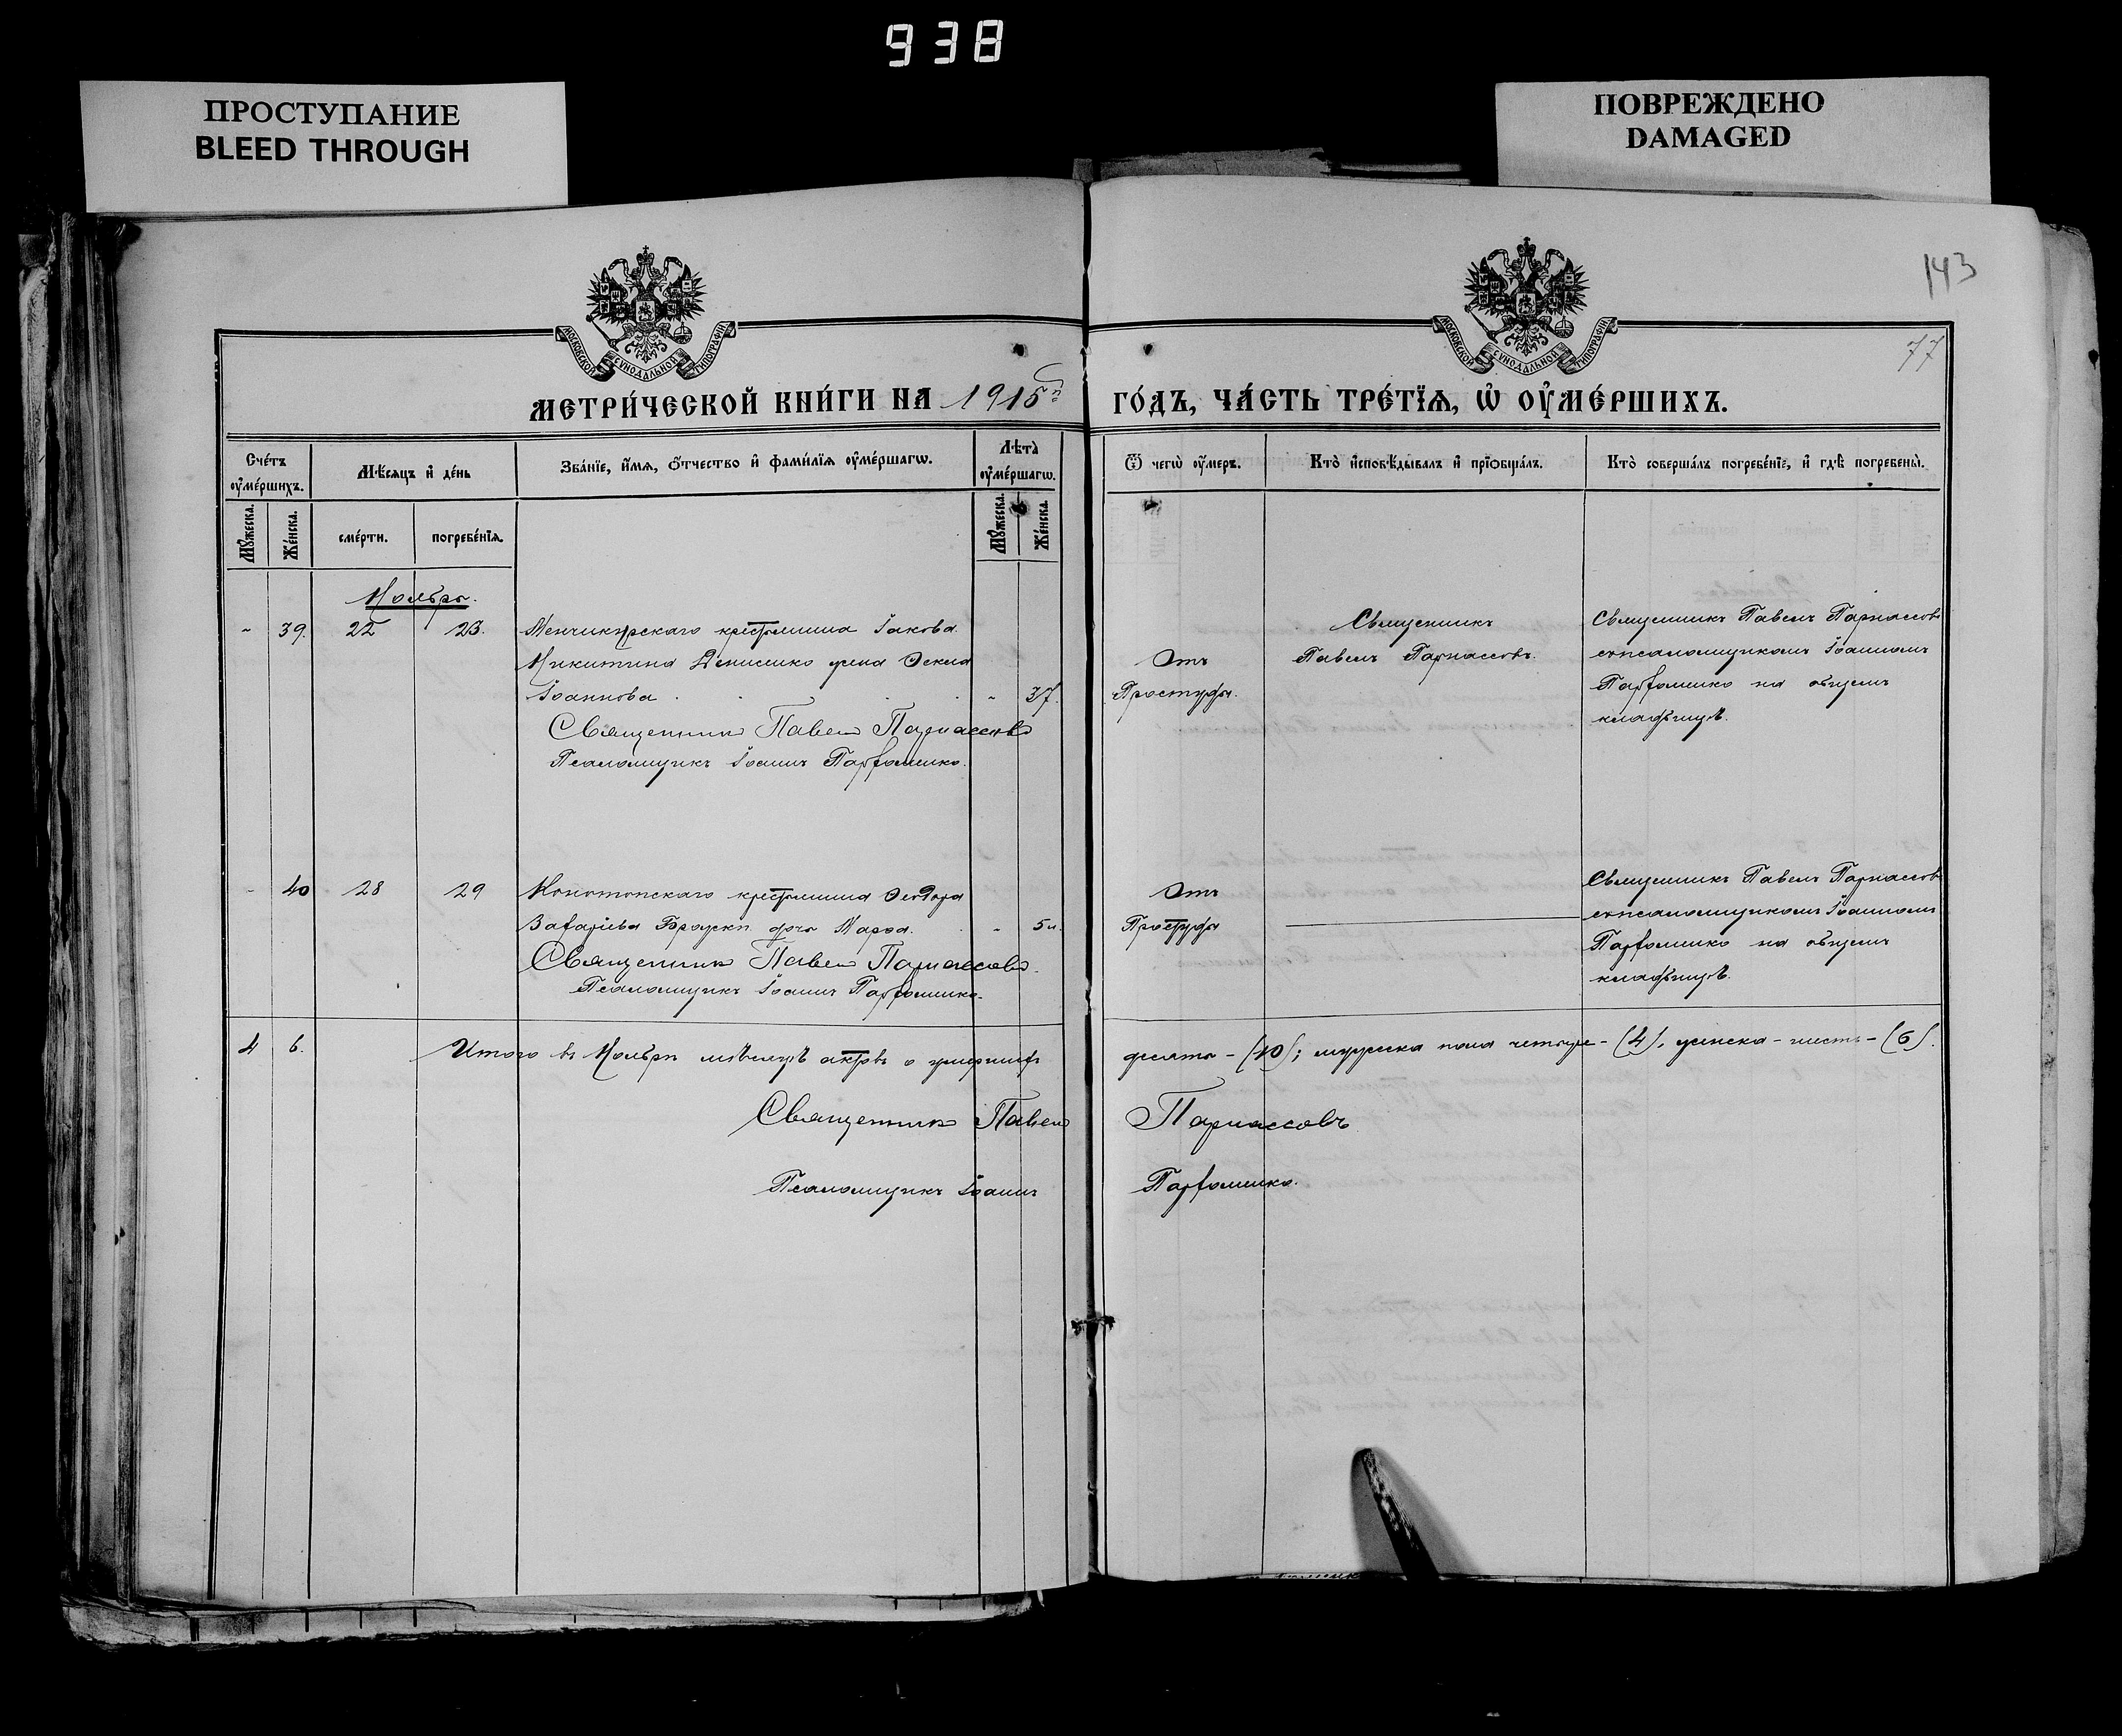 938
ПРОСТУПАНИЕ
BLEED THROUGH
ПОВРЕЖДЕНО
DAMAGED
143
77
МОСКОВСКОЙ СѴНОДАЛЬНОЙ ТИПОГРАФІИ
МОСКОВСКОЙ СѴНОДАЛЬНОЙ ТИПОГРАФІИ
МЕТРИ́ЧЕСКОЙ КНИ́ГИ НА 1915й
ГО́ДЪ, ЧА́СТЬ ТРЕ́ТЇѦ, Ѡ҆ ОУ҆МЕ́РШИХЪ.
Сче́тъ оу҆ме́ршихъ.
Мѣ́сѧцъ и҆ де́нь
Зва́нїе, и҆́мѧ, ѻ҆́тчество и҆ фами́лїѧ оу҆ме́ршагѡ.
Лѣ́та оу҆ме́ршагѡ.
Ѿ чегѡ̀ оу҆́меръ.
Кто̀ и҆сповѣ́дывалъ и҆ прїѡбща́лъ.
Кто̀ соверша́лъ погребе́нїе, и҆ гдѣ̀ погребены̀.
Мꙋ́жеска.
Же́нска.
сме́рти.
погребе́нїѧ.
Мꙋ́жеска.
Же́нска.
Ноябрь.
- 39. 22 23. Менчикурскаго крестьянина Іакова
Никитина Денисенко жена Ѳекла
Іоаннова - 37.
Священникъ Павелъ Парнассовъ
Псаломщикъ Іоаннъ Парфоменко.
Отъ
Простуды.
Священникъ
Павелъ Парнассовъ.
Священникъ Павелъ Парнассовъ
съ псаломщикомъ Іоанномъ
Парфоменко на общемъ
кладбищѣ.
- 40 28 29 Конотопскаго крестьянина Ѳеодора
дочь - 5
Священникъ Павелъ Парнассовъ.
Псаломщикъ Іоаннъ Парфоменко.
Отъ
Простуды
Священникъ Павелъ Парнассовъ
съ псаломщикомъ Іоанномъ
Парфоменко на общемъ
кладбищѣ.
4 6. Итого въ Ноябрѣ мѣсяцѣ актовъ о умершихъ десять - (10); мужеска пола четыре - (4), женска - шесть - (6).
Священникъ Павелъ Парнассовъ
Псаломщикъ Іоаннъ Парфоменко.